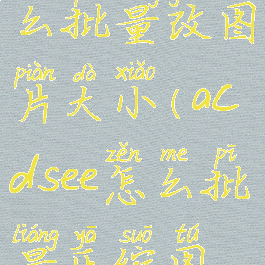 么批量改图
piàn dà xiǎo
片大小(ac
zěn me pī
dsee怎么批
liáng yā suō tú
量压缩图